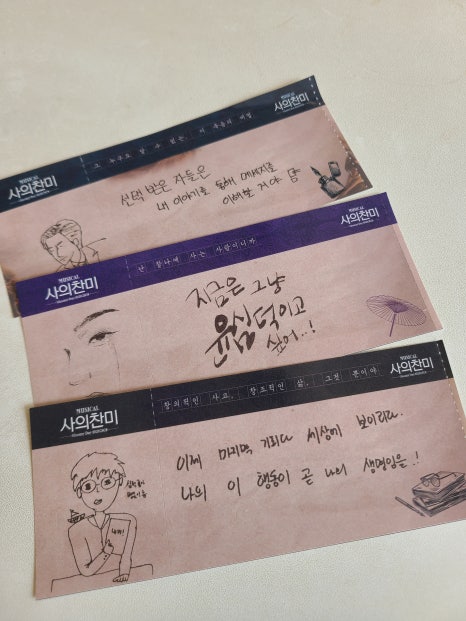 MUSICAL
사의찬미
그 누구도 알 수 없는, 이 죽음의 비밀
MUSICAL
사의찬미
선택 받은 자들은
내 이야기를 통해 메세지를
이해할 거야
MUSICAL
사의찬미
난 찰나에 사는 사람이니까
MUSICAL
사의찬미
지금은 그냥
윤심덕이고
싶어..!
MUSICAL
사의찬미
창의적인 사고, 창조적인 삶, 그것 뿐이야
MUSICAL
사의찬미
이제 마지막 기회다 세상에 보이리라.
나의 이 행동이 곧 나의 생명임을.!